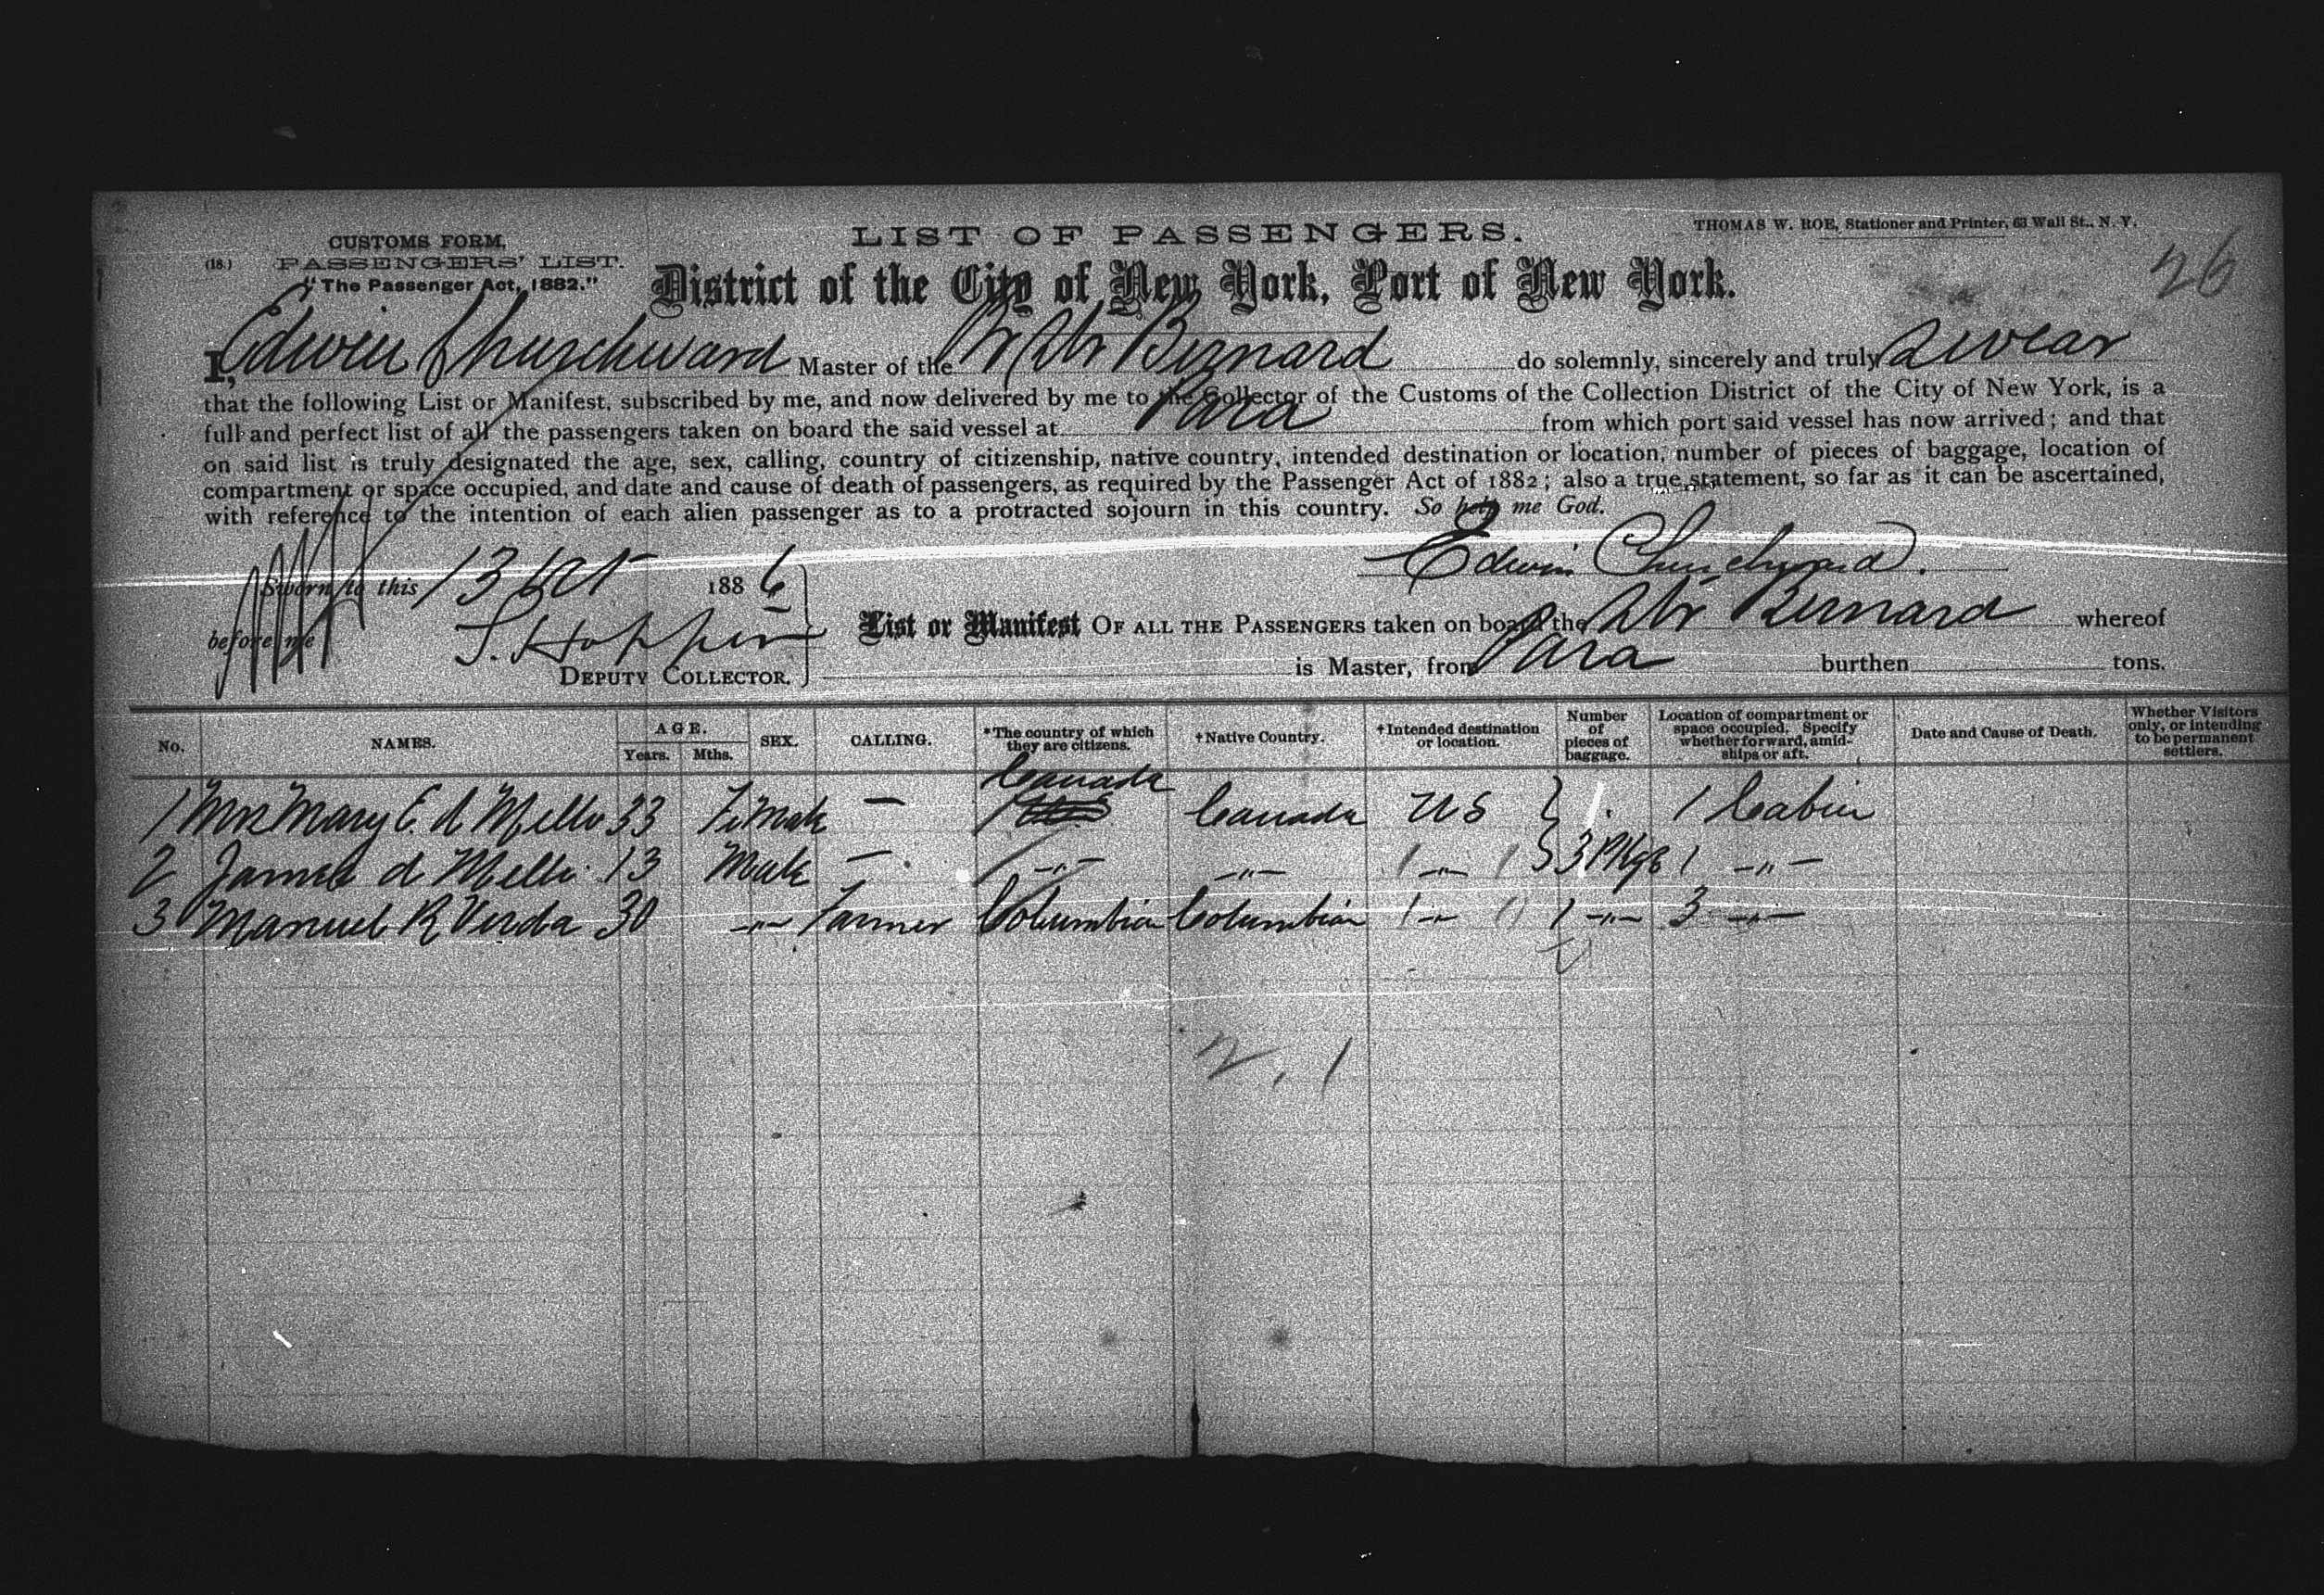 LIST OF PASSENGERS.
THOMAS W. ROE, Stationer and Printer, 63 Wall St., N. Y.
CUSTOMS FORM,
(18.) PASSENGERS' LIST.
"The Passenger Act, 1882."
26
District of the City of New York, Port of New York.
I, Edwin Churchward Master of the Str Bernard do solemnly, sincerely and truly swear
that the following List or Manifest, subscribed by me, and now delivered by me to the Collector of the Customs of the Collection District of the City of New York, is a
full and perfect list of all the passengers taken on board the said vessel at Para from which port said vessel has now arrived; and that
on said list is truly designated the age, sex, calling, country of citizenship, native country, intended destination or location, number of pieces of baggage, location of
compartment or space occupied, and date and cause of death of passengers, as required by the Passenger Act of 1882; also a true statement, so far as it can be ascertained,
with reference to the intention of each alien passenger as to a protracted sojourn in this country. So help me God.
Edwin Churchward.
Sworn to this 13 188 6
before me
S. Hopper
DEPUTY COLLECTOR.
List or Manifest OF ALL THE PASSENGERS taken on board the Str Bernard whereof
is Master, from Para burthen tons.
No. NAMES. AGE. Years. Mths. SEX. CALLING. *The country of which they are citizens. †Native Country. †Intended destination or location. Number of pieces of baggage. Location of compartment or space occupied. Specify whether forward, amidships or aft. Date and Cause of Death. Whether Visitors only, or intending to be permanent settlers.
1 Mrs Mary E. d Mello 33 Female — Canada Canada US 1 Cabin
2 James d Mello 13 Male — -"- -"- -"- 3 Pkgs 1 -"-
3 Manuel R Verda 30 -"- Farmer Columbia Columbian -"- 1 -"- 3 -"-
2, 1